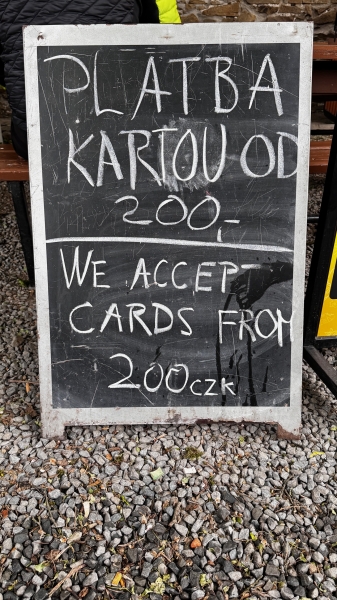 PLATBA
KARTOU OD
200,-
WE ACCEPT
CARDS FROM
200 CZK